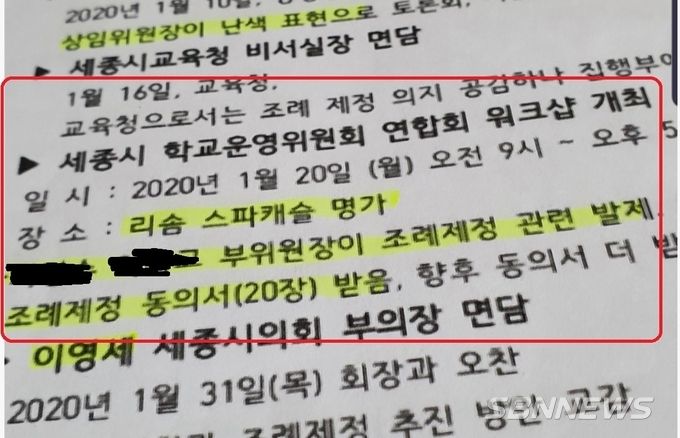 2020년 1월 10일,
상임위원장이 난색 표현으로 토론회,
▶ 세종시교육청 비서실장 면담
1월 16일, 교육청.
교육청으로서는 조례 제정 의지 공감하나 집행부
▶ 세종시 학교운영위원회 연합회 워크샵 개최
일 시 : 2020년 1월 20일 (월) 오전 9시 ~ 오후 5
장 소 : 리솜 스파캐슬 명가
부위원장이 조례제정 관련 발제.
조례제정 동의서(20장) 받음, 향후 동의서 더 받
이영세 세종시의회 부의장 면담
2020년 1월 31일(목) 회장과 오찬
조례제정 추진 방안 공감
SBNNEWS